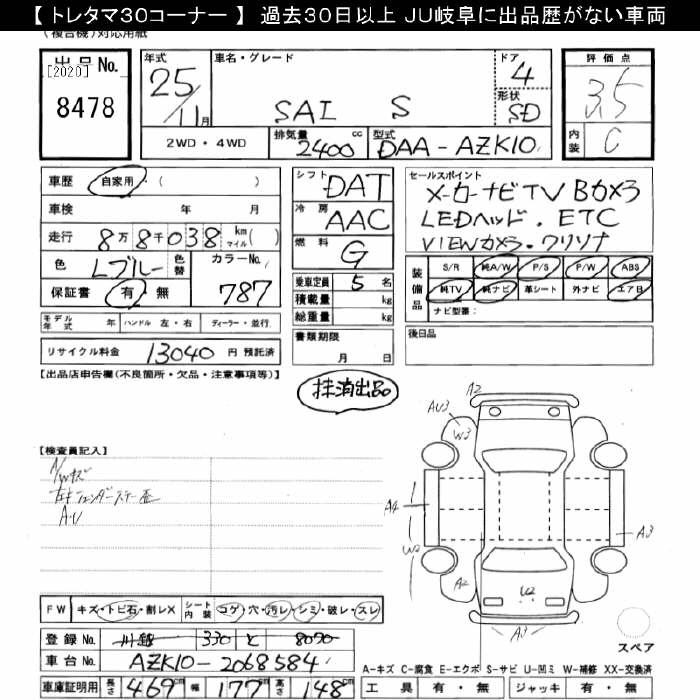 【 トレタマ30コーナー 】 過去30日以上 JU岐阜に出品歴がない車両
(複合機)対応用紙
出品No.
[2020]
8478
年式
25/11月
車名・グレード
SAI S
ドア
4
形状
SD
評価点
3.5
内装
C
2WD・4WD
排気量
2400 cc
型式
DAA-AZK10
車歴 自家用・( )
車検 年 月
走行 8万8千038 km マイル ( )
色 Lブルー 色替 カラーNo.
787
保証書 有・無
モデル年式 年 ハンドル 左・右 ディーラー・並行
リサイクル料金 13040 円 預託済
シフト DAT
冷房 AAC
燃料 G
乗車定員 5 名
積載量 kg
総重量 kg
書類期限
月 日
セールスポイント
メーカーナビTV Bカメラ
LEDヘッド. ETC
VIEWカメラ・クリソナ
装備品
S/R 純A/W P/S P/W ABS
純TV 純ナビ 革シート 外ナビ エア B
ナビ型番:
後日品
【出品店申告欄(不良箇所・欠品・注意事項等)】
抹消出品
【検査員記入】
A/Wキズ
A・U
A2
AU3
W3
A4
W2
A2
U2
A3
A3
スペア
FW キズ・トビ石・割レX シート内装 コゲ・穴・汚レ・シミ・破レ・スレ
登録No. 330 と 8070
車台No. AZK10-2068584
車庫証明用 長さ 469cm 幅 177cm 高さ 148cm
A-キズ C-腐食 E-エクボ S-サビ U-凹ミ W-補修 XX-交換済
工具 有・無 ジャッキ 有・無